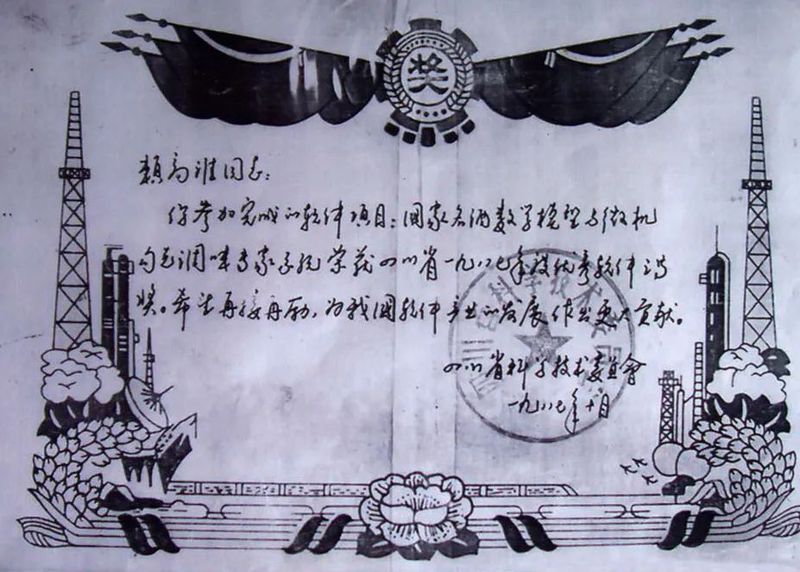 奖
赖高淮同志：
你参加完成的软件项目：国家名酒数学模型与微机
勾兑调味专家系统荣获四川省一九八七年度优秀软件
奖。希望再接再励，为我国软件产业的发展作出更大贡献。
四川省科学技术委员會
一九八七年十月